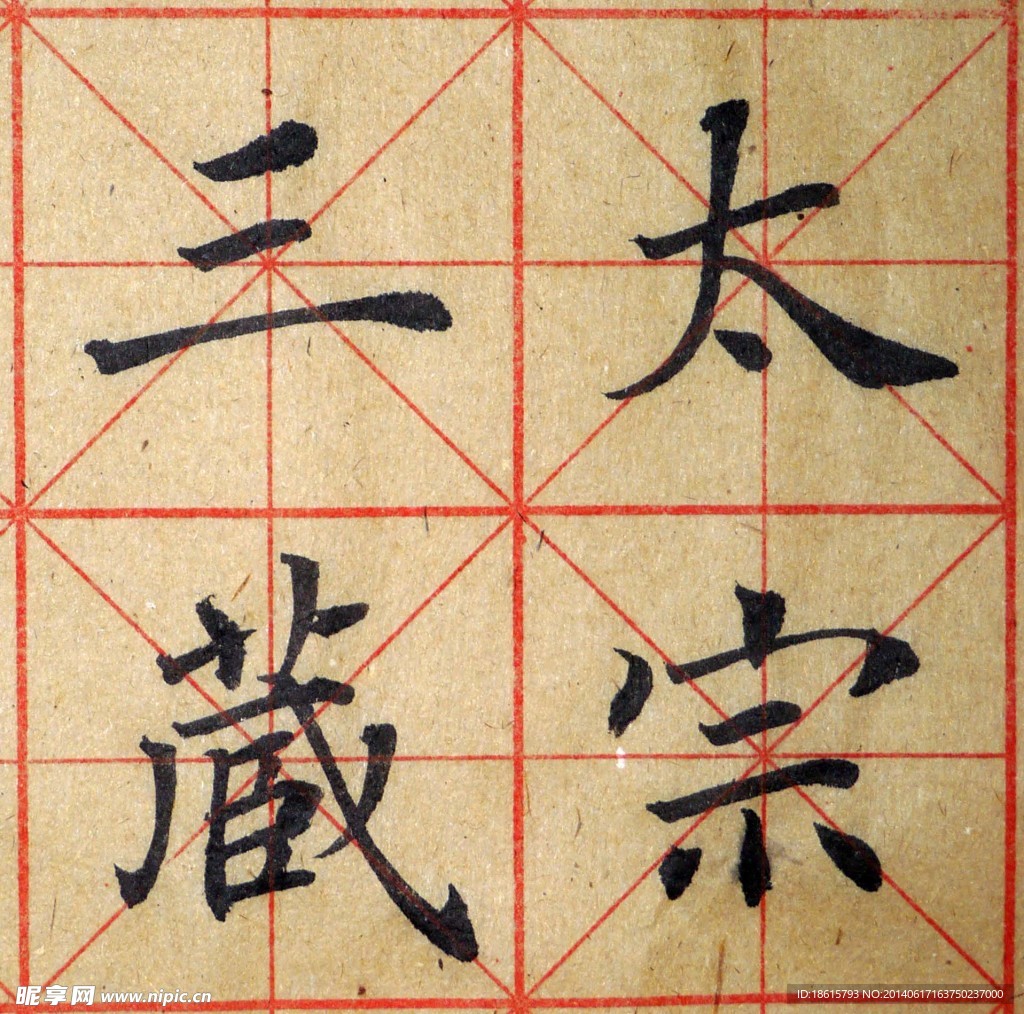 太宗
三藏
昵享网 www.nipic.cn
ID:18615793 NO:20140617163750237000